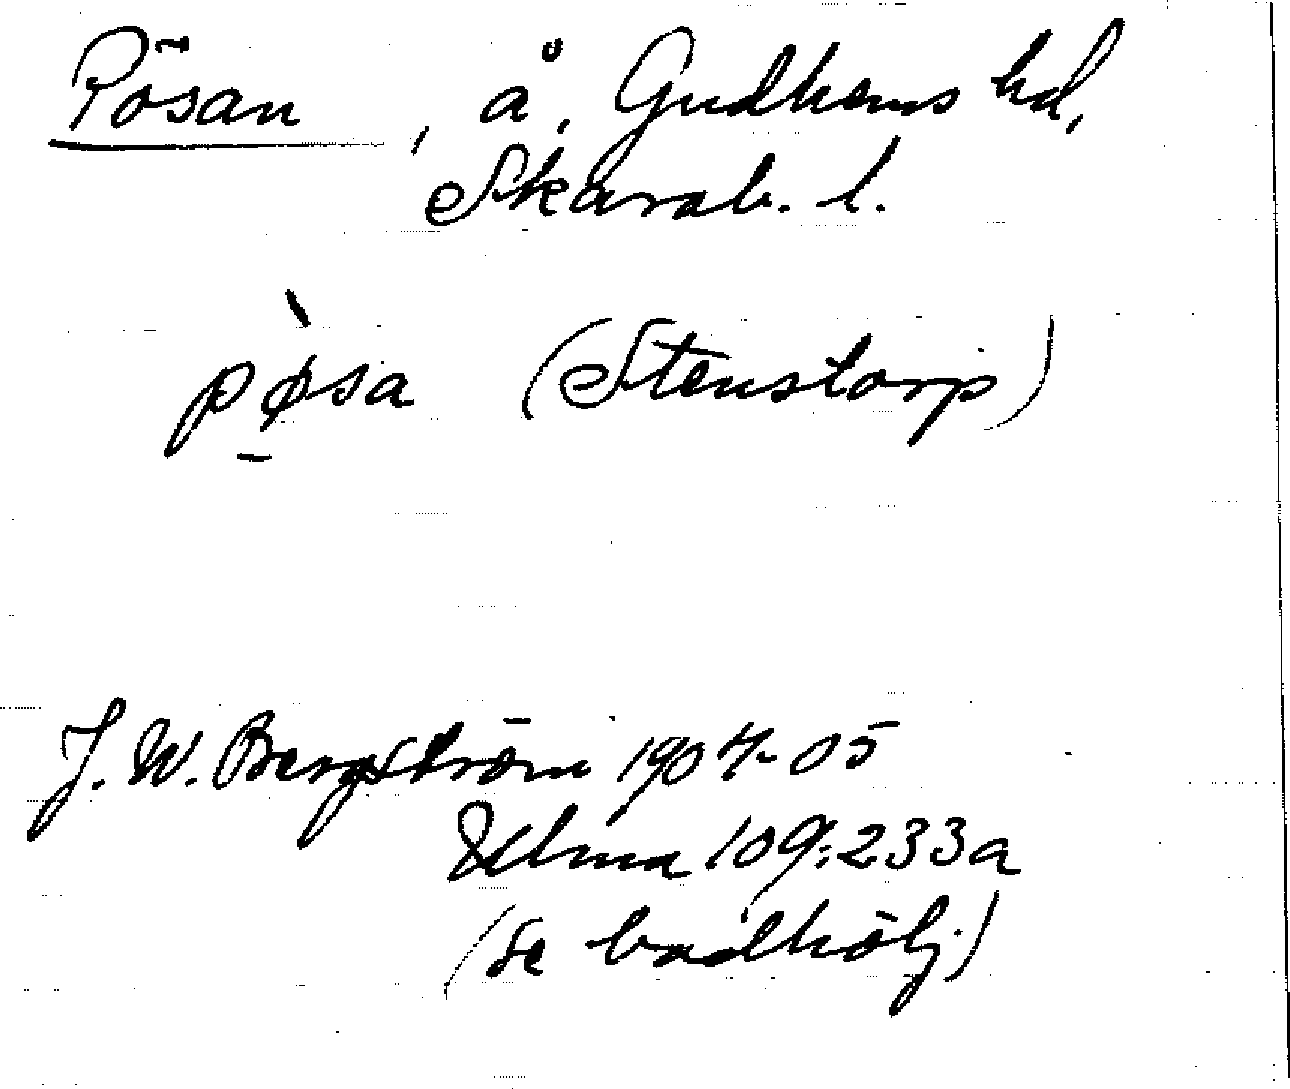 Pösan, å, Gudhems hd,
Skarab. l.
pø̀sa (Stenstorp)
J. W. Bergström 1904-05
Ulma 109:233a
(Se badhölj)